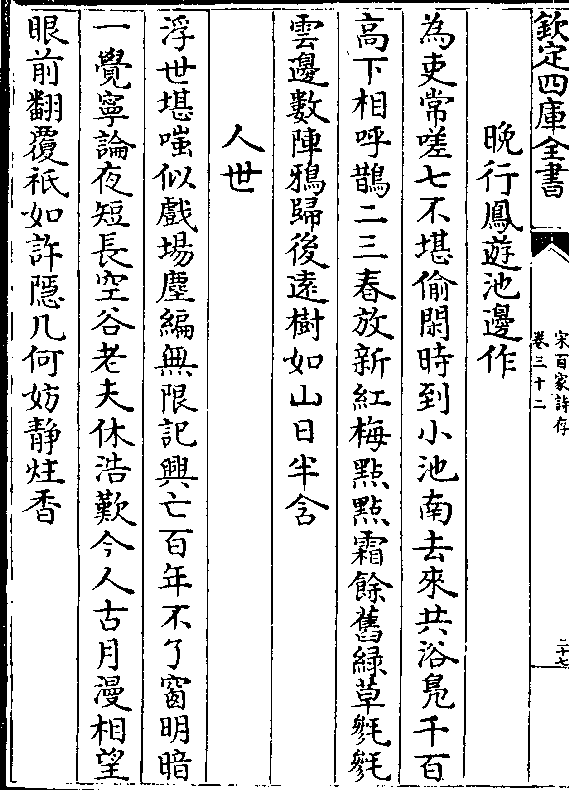 欽定四庫全書
宋百家詩存
卷三十二
二十七
晚行鳳遊池邊作
為吏常嗟七不堪偷閑時到小池南去來共浴鳧千百
高下相呼鵲二三春放新紅梅點點霜餘舊綠草毿毿
雲邊數陣鴉歸後遠樹如山日半含
人世
浮世堪嗤似戲場塵編無限記興亡百年不了窗明暗
一覺寧論夜短長空谷老夫休浩歎今人古月漫相望
眼前翻覆祇如許隱几何妨静炷香